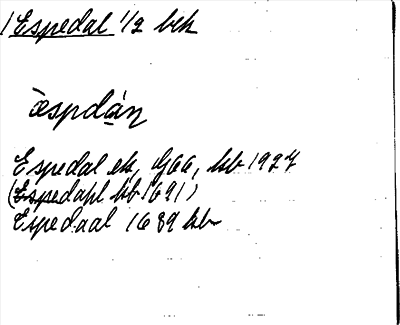 Espedal 1/2 bek
æspdán
Espedal ek, G66, kb 1927
(Espedahl kb 1691)
Espedaal 1689 kb